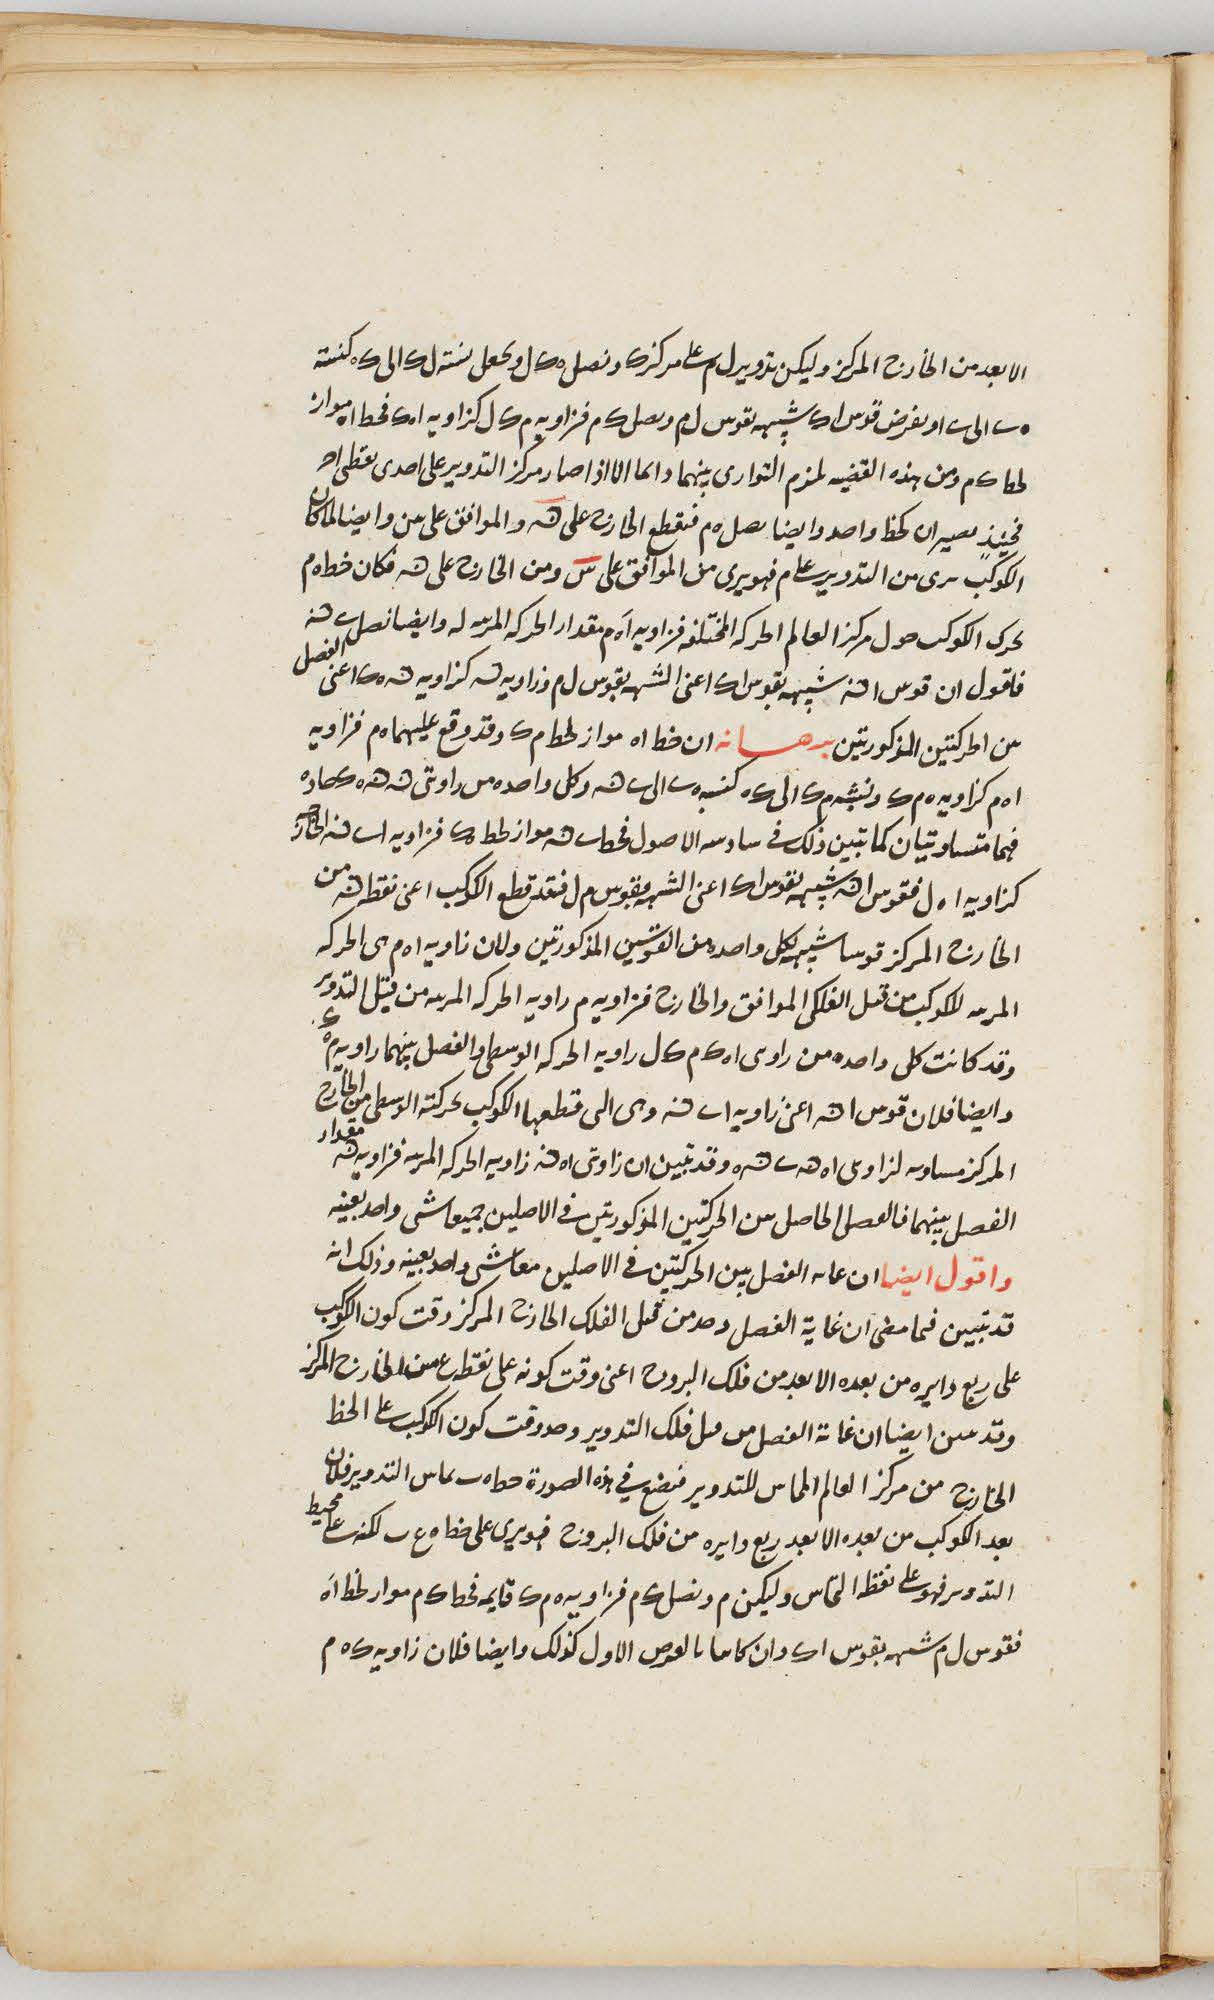 الابعد من الخارج المركز وليكن تدوير ل م على مركز ك ونصل ه ك ل ونجعل نسبة ل ك الى ك ه كنسبة
ه ب الى ب ا ونفرض قوس ا ك شبيهه بقوس ل م ونصل ك م فزاويه م ك ل كزاويه ا ه ك فخط ا ه مواز
لخط ك م ومن هذه القضيه لزم التوازى بينهما دايما الا اذا صار مركز التدوير على احدى نقطى ا ح
فحينئذ يصيران كخط واحد وايضا نصل ه م فيقطع الخارج على ش والموافق على س وايضا لما كان
الكوكب يرى من التدوير على م فهو يرى من الموافق على س ومن الخارج على ش فكان خط ه م
يحرك الكوكب حول مركز العالم الحركه المختلفه فزاويه ا ه م مقدار الحركه المرييه له وايضا نصل ب ش
فاقول ان قوس ا ش شبيهه بقوس ا ك اعنى الشبيهه بقوس ل م وزاويه ش كزاويه ش ه ك اعنى الفصل
بين الحركتين المذكورتين برهانه ان خط ا ه مواز لخط م ك وقد وقع عليهما ه م فزاويه
ا ه م كزاويه ه م ك ونسبة م ك الى ك ه كنسبه ه ب الى ب ش وكل واحده من زاويتى ش ه ه ك حاده
فهما متساويتان كما تبين ذلك فى سادسه الاصول فخط ب ش مواز لخط ه ك فزاويه ا ب ش الخارجه
كزاويه ا ه ل فقوس ا ش شبيهه بقوس ا ك اعنى الشبيهه بقوس م ل فقد قطع الكوكب اعنى نقطه ش من
الخارج المركز قوسا شبيهه بكل واحده من القوسين المذكورتين ولان زاويه ا ه م هى الحركه
المرييه للكوكب من قبل الفلكى الموافق والخارج فزاويه م زاويه الحركه المرييه من قبل التدوير
وقد كانت كل واحده من زاويتى ا ه ك م ك ل زاويه الحركه الوسطى والفصل بينهما زاويه م ه ك
وايضا فلان قوس ا ش اعنى زاويه ا ب ش وهى التى قطعها الكوكب بحركته الوسطى من الخارج
المركز مساويه لزاويتى ا ه ش ب ش ه وقد تبين ان زاويتى ا ه ش زاويه الحركه المرييه فزاويه ش مقدار
الفصل بينهما فالفصل الحاصل بين الحركتين المذكورتين فى الاصلين جميعا شى واحد بعينه
واقول ايضا ان غايه الفصل بين الحركتين فى الاصلين معا شى واحد بعينه وذلك انه
قد تبين فيما مضى ان غاية الفصل وجد من قبل الفلك الخارج المركز وقت كون الكوكب
على ربع دايره من بعده الابعد من فلك البروج اعنى وقت كونه على نقطه ع من الخارج المركز
وقد تبين ايضا ان غاية الفصل من قبل فلك التدوير وجد وقت كون الكوكب على الخط
الخارج من مركز العالم المماس للتدوير فنضع فى هذه الصورة خط ه ب يماس التدوير فلان
بعد الكوكب من بعده الابعد ربع دايره من فلك البروج فهو يرى على خط ه ع ب لكنه على محيط
التدوير فهو على نقطه التماس وليكن م ونصل ك م فزاويه ه م ك قايمه فخط ك م مواز لخط ا ه
فقوس ل م شبيهه بقوس ا ك وان كانتا بالفرض الاول كذلك وايضا فلان زاويه ك ه م